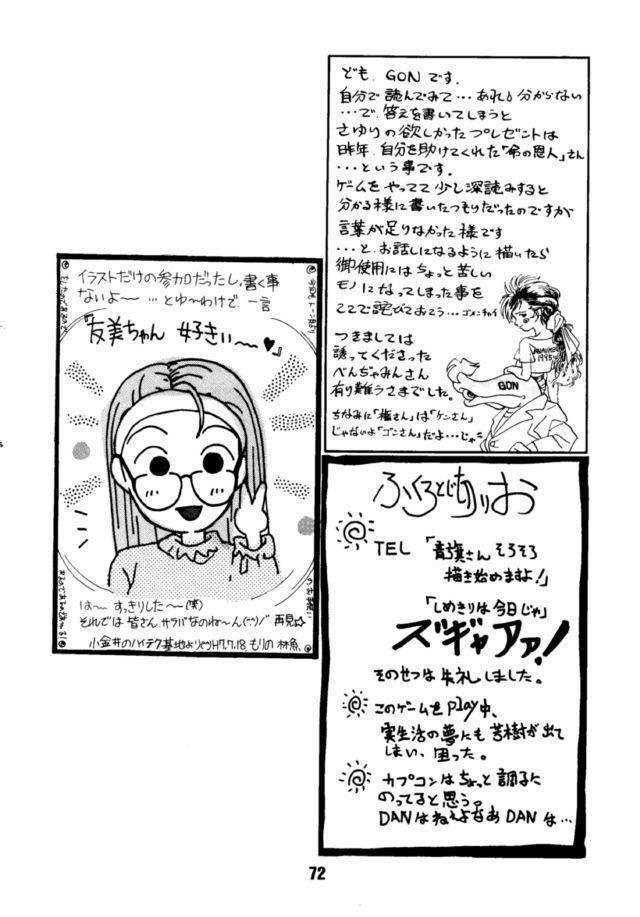 ども、GONです。
自分で読んでみて…あれ!分からない
…で、答えを書いてしまうと
さゆりの欲しかったプレゼントは
昨年、自分を助けてくれた「命の恩人」さん
…という事です。
ゲームをやってて少し深読みすると
分かる様に書いたつもりだったのですが
言葉が足りなかった様です
…と、お話しになるように描いたら
御使用にはちょっと苦しい
モノになってしまった事を
ここで詫びておこう…ゴメンチャイ
つきましては
誘ってくださった
べんぢゃみんさん
有り難うさまでした。
ちなみに「権さん」は「ケンさん」
じゃないよ「ゴンさん」だよ…じゃ
1995
GON
イラストだけの参加だったし、書く事
ないよ〜 …とゆ〜わけで、一言
『友美ちゃん 好きぃ〜〜♥』
は〜〜すっきりした〜(笑)
それでは皆さん、サラバなのね〜ん(^^)/ 再見☆
小金井のハイテク基地より H7.7.18. もりの 林魚
ふくろとじきりお
TEL 「青旗さんそろそろ
描き始めますよ!」
「しめきりは今日じゃ」
ズギャアァ!
そのせつは失礼しました。
このゲームをplay中、
実生活の夢にも若樹が出て
しまい、困った。
カプコンはちょっと調子に
のってると思う。
DANはねえよなあDANは…
72